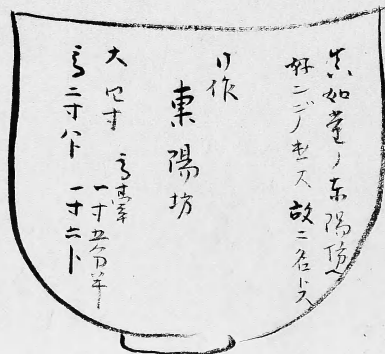 真如堂ノ東陽坊
好ンデ ス 故ニ名トス
東陽坊
大 四寸 高臺 一寸五分半
高二寸八卜 一寸六卜